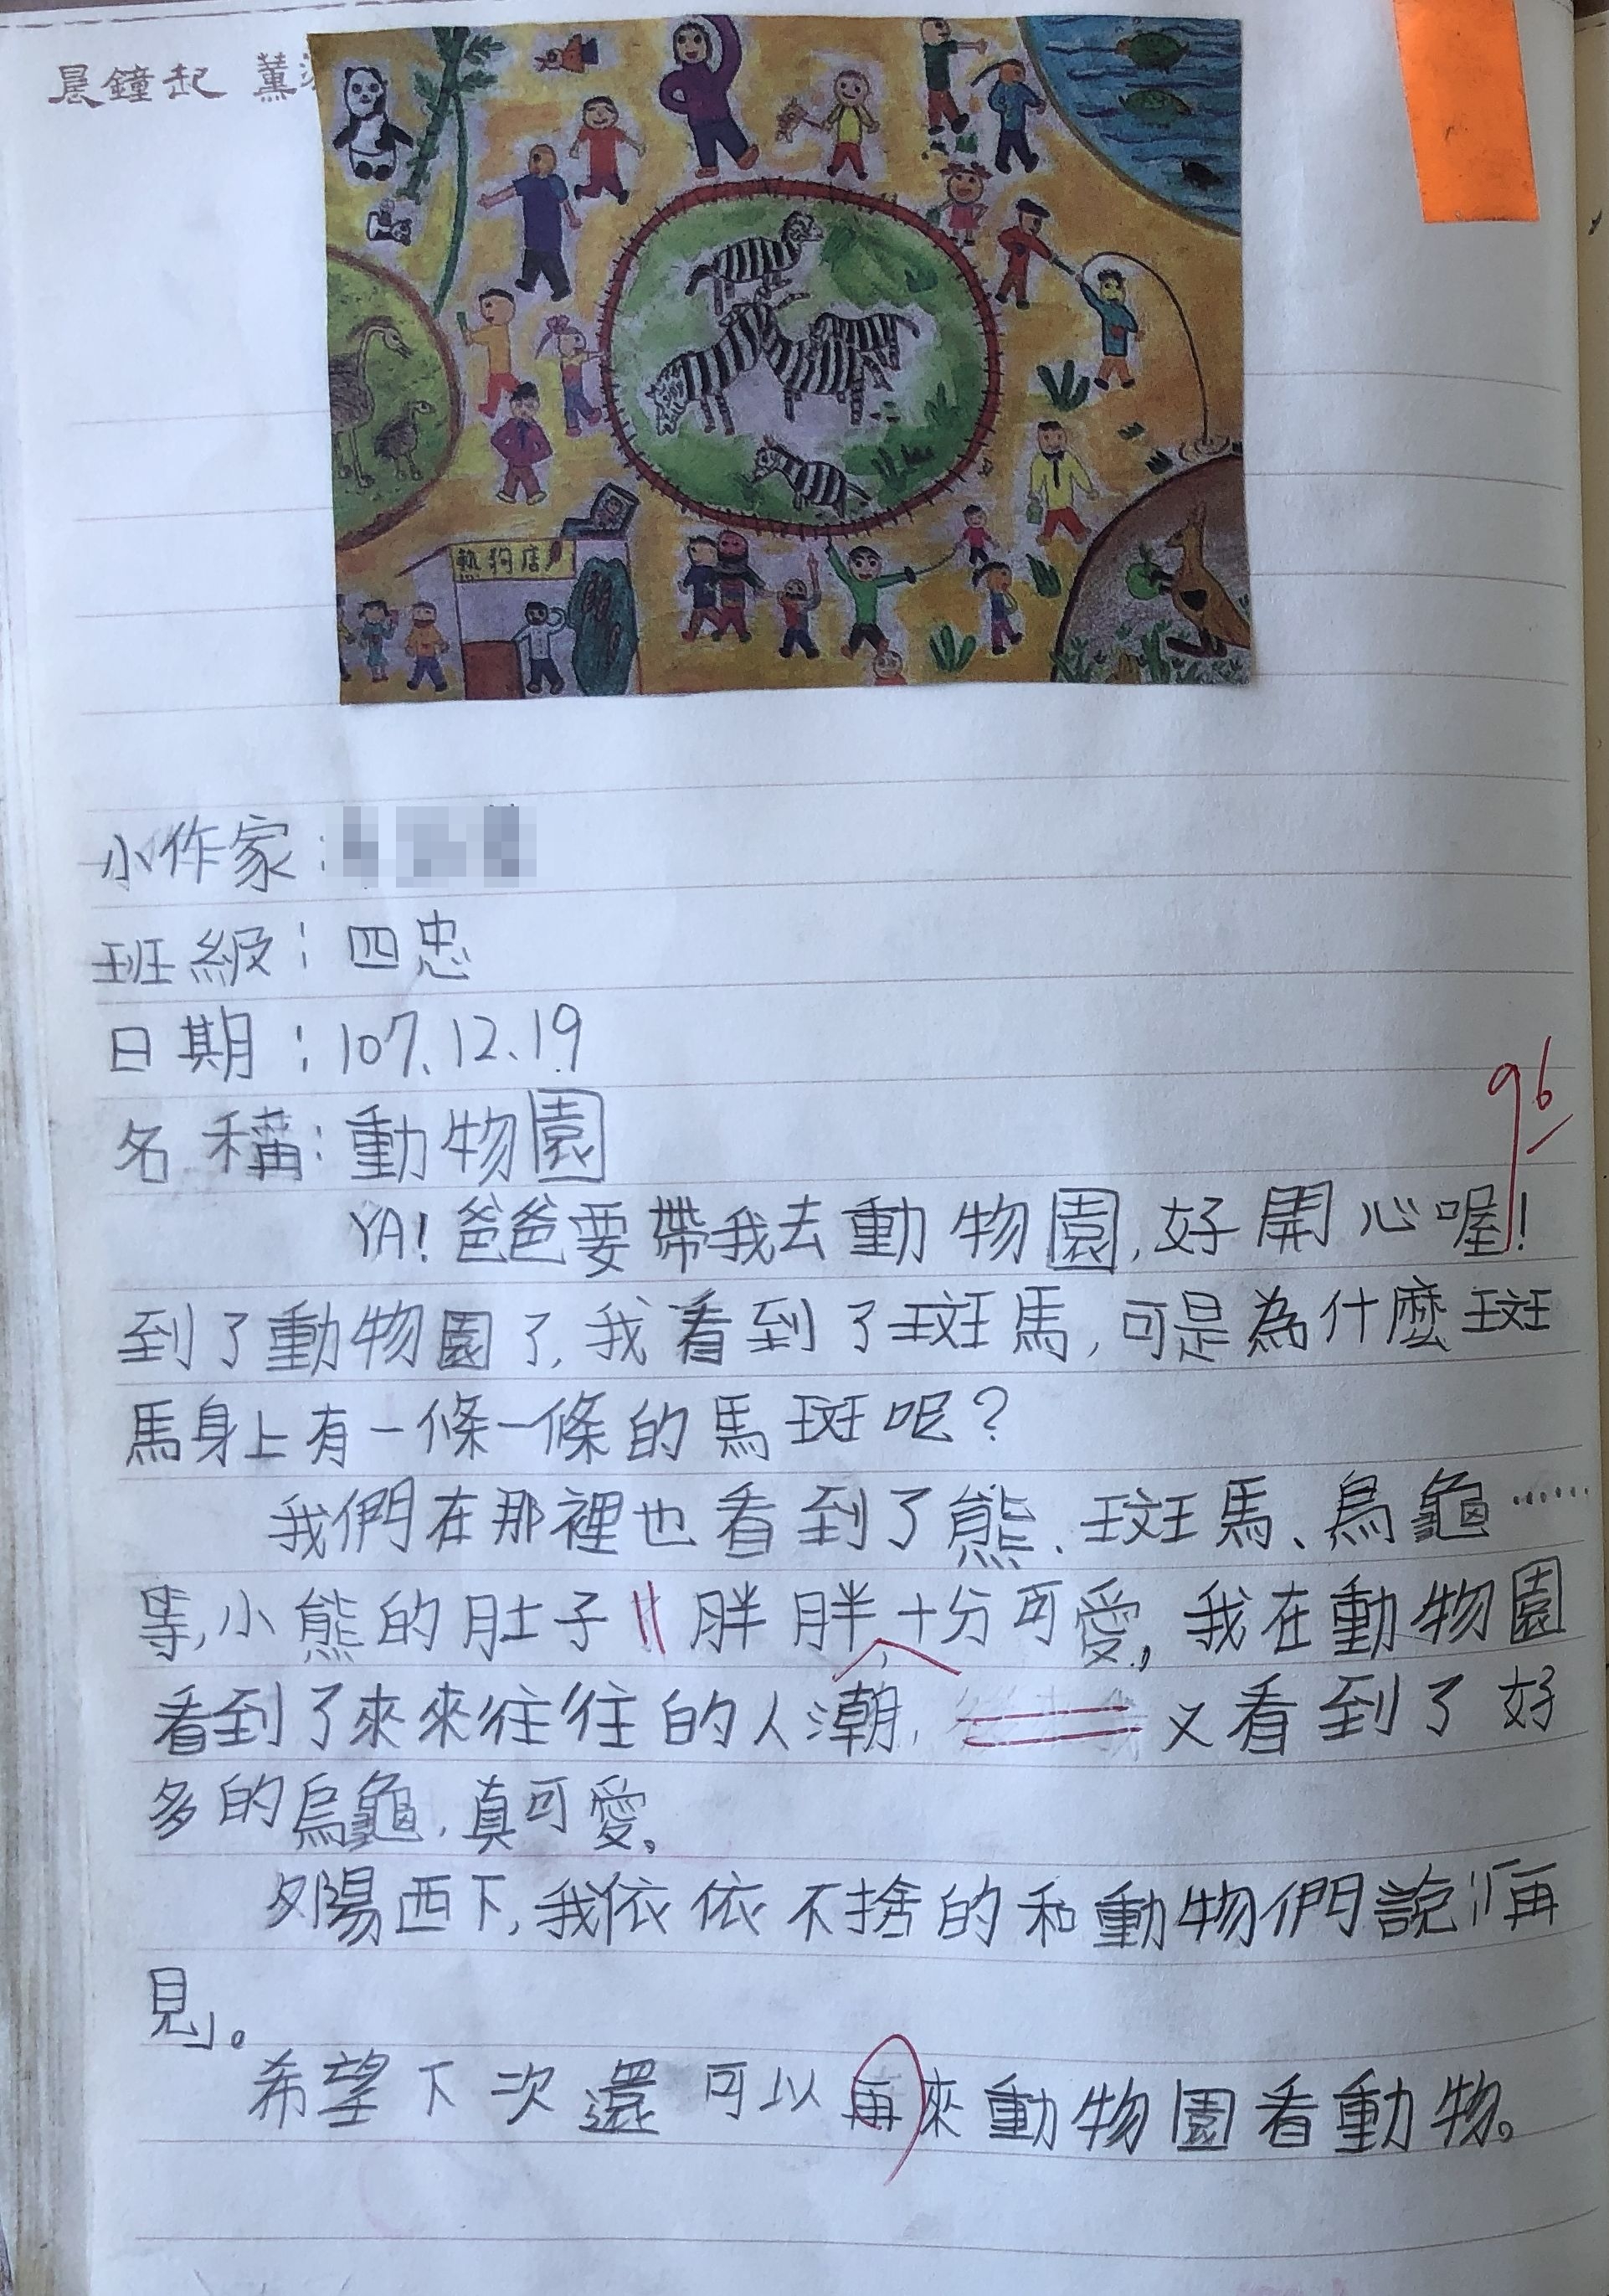 晨鐘起 薰
熱狗店
小作家:
班級:四忠
日期:107.12.19
名稱:動物園
96
YA!爸爸要帶我去動物園,好開心喔!
到了動物園了,我看到了斑馬,可是為什麼斑
馬身上有一條一條的馬斑呢?
我們在那裡也看到了熊、斑馬、烏龜……
等,小熊的肚子胖胖,十分可愛,我在動物園
看到了來來往往的人潮,又看到了好
多的烏龜,真可愛。
夕陽西下,我依依不捨的和動物們說:「再
見」。
希望下次還可以再來動物園看動物。